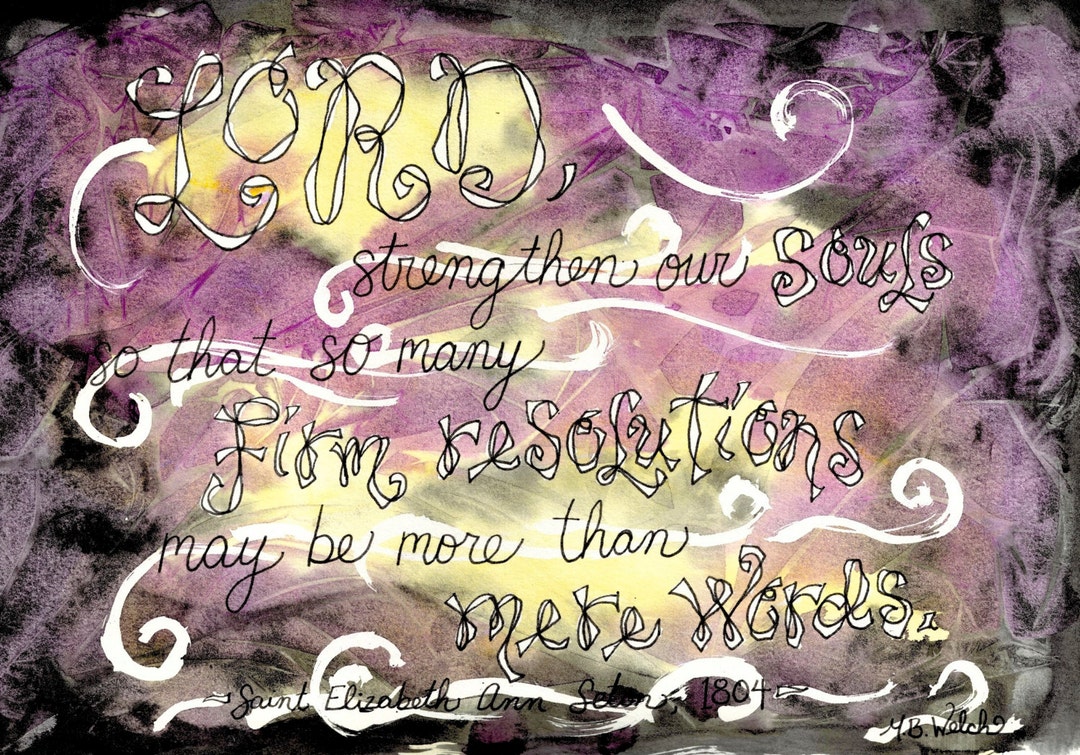 LORD,
strengthen our souls
so that so many
firm resolutions
may be more than
mere words.
~Saint Elizabeth Ann Seton, 1804~
M.B. Welch